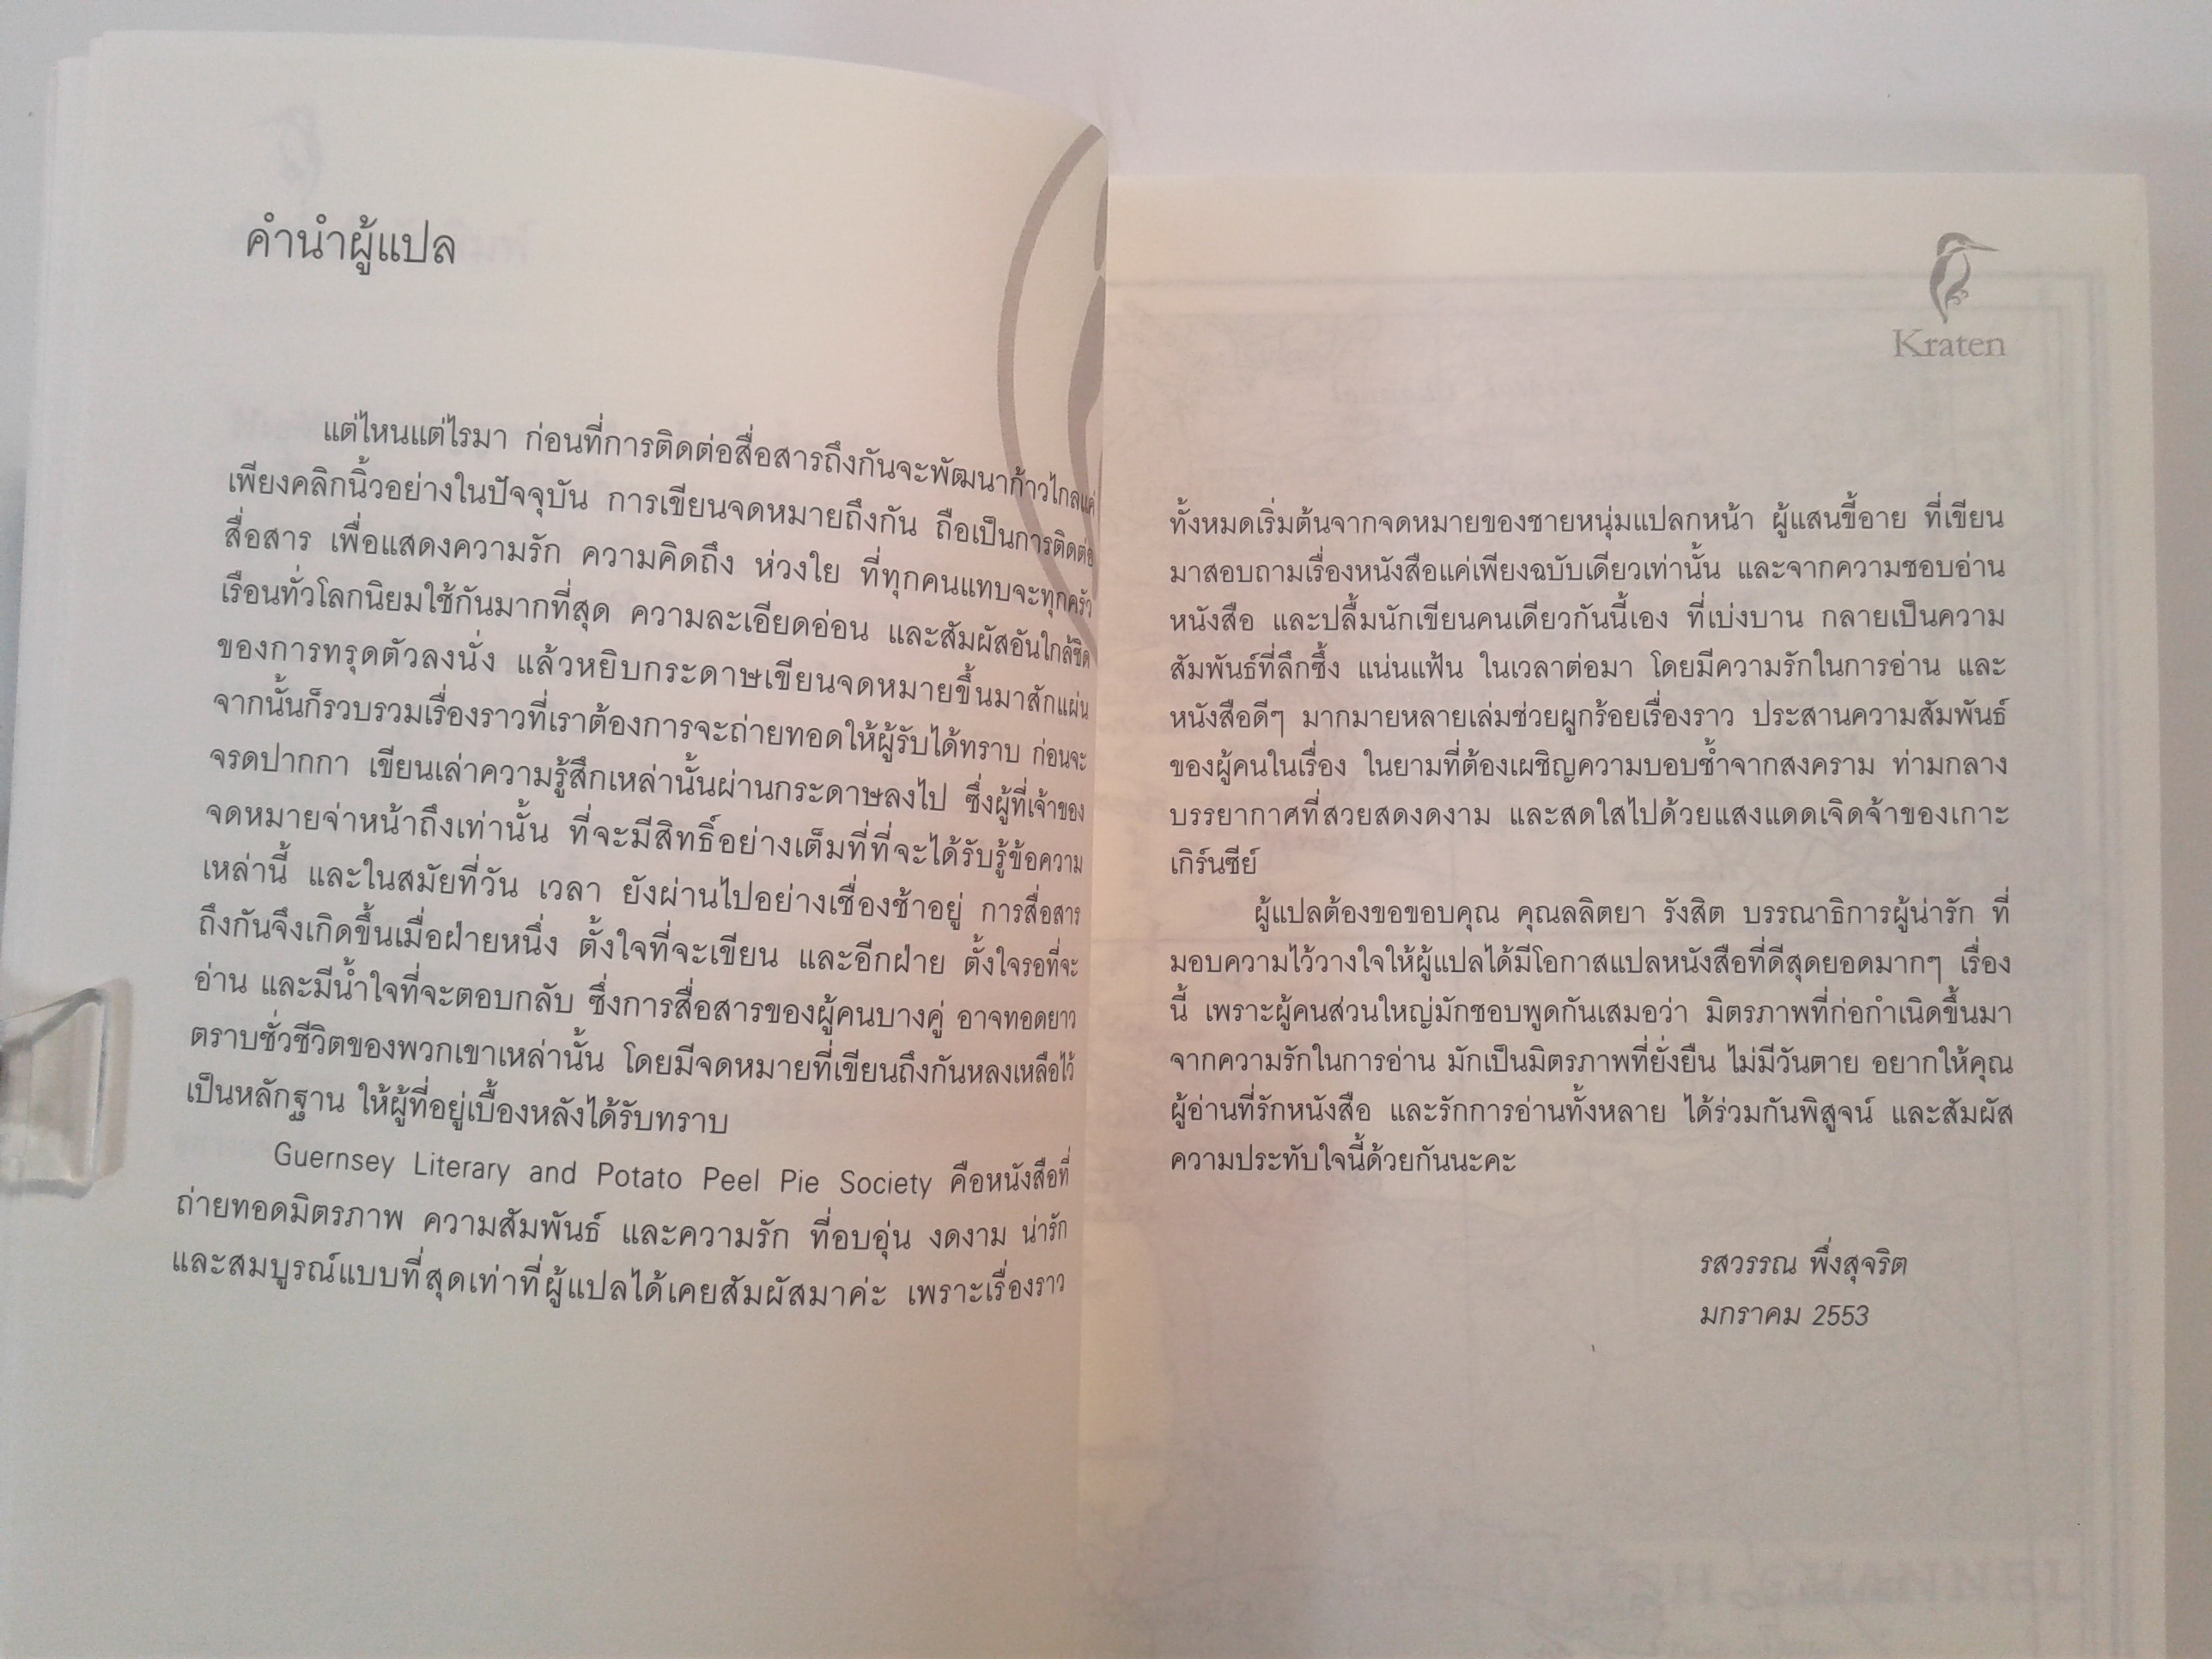 คำนำผู้แปล
แต่ไหนแต่ไรมา ก่อนที่การติดต่อสื่อสารถึงกันจะพัฒนาก้าวไกลแค่
เพียงคลิกนิ้วอย่างในปัจจุบัน การเขียนจดหมายถึงกัน ถือเป็นการติดต่อ
สื่อสาร เพื่อแสดงความรัก ความคิดถึง ห่วงใย ที่ทุกคนแทบจะทุกครัว
เรือนทั่วโลกนิยมใช้กันมากที่สุด ความละเอียดอ่อน และสัมผัสอันใกล้ชิด
ของการทรุดตัวลงนั่ง แล้วหยิบกระดาษเขียนจดหมายขึ้นมาสักแผ่น
จากนั้นก็รวบรวมเรื่องราวที่เราต้องการจะถ่ายทอดให้ผู้รับได้ทราบ ก่อนจะ
จรดปากกา เขียนเล่าความรู้สึกเหล่านั้นผ่านกระดาษลงไป ซึ่งผู้ที่เจ้าของ
จดหมายจ่าหน้าถึงเท่านั้น ที่จะมีสิทธิ์อย่างเต็มที่ที่จะได้รับรู้ข้อความ
เหล่านี้ และในสมัยที่วัน เวลา ยังผ่านไปอย่างเชื่องช้าอยู่ การสื่อสาร
ถึงกันจึงเกิดขึ้นเมื่อฝ่ายหนึ่ง ตั้งใจที่จะเขียน และอีกฝ่าย ตั้งใจรอที่จะ
อ่าน และมีน้ำใจที่จะตอบกลับ ซึ่งการสื่อสารของผู้คนบางคู่ อาจทอดยาว
ตราบชั่วชีวิตของพวกเขาเหล่านั้น โดยมีจดหมายที่เขียนถึงกันหลงเหลือไว้
เป็นหลักฐาน ให้ผู้ที่อยู่เบื้องหลังได้รับทราบ
Guernsey Literary and Potato Peel Pie Society คือหนังสือที่
ถ่ายทอดมิตรภาพ ความสัมพันธ์ และความรัก ที่อบอุ่น งดงาม น่ารัก
และสมบูรณ์แบบที่สุดเท่าที่ผู้แปลได้เคยสัมผัสมาค่ะ เพราะเรื่องราว
Kraten
ทั้งหมดเริ่มต้นจากจดหมายของชายหนุ่มแปลกหน้า ผู้แสนขี้อาย ที่เขียน
มาสอบถามเรื่องหนังสือแค่เพียงฉบับเดียวเท่านั้น และจากความชอบอ่าน
หนังสือ และปลื้มนักเขียนคนเดียวกันนี้เอง ที่เบ่งบาน กลายเป็นความ
สัมพันธ์ที่ลึกซึ้ง แน่นแฟ้น ในเวลาต่อมา โดยมีความรักในการอ่าน และ
หนังสือดีๆ มากมายหลายเล่มช่วยผูกร้อยเรื่องราว ประสานความสัมพันธ์
ของผู้คนในเรื่อง ในยามที่ต้องเผชิญความบอบช้ำจากสงคราม ท่ามกลาง
บรรยากาศที่สวยสดงดงาม และสดใสไปด้วยแสงแดดเจิดจ้าของเกาะ
เกิร์นซีย์
ผู้แปลต้องขอขอบคุณ คุณลลิตยา รังสิต บรรณาธิการผู้น่ารัก ที่
มอบความไว้วางใจให้ผู้แปลได้มีโอกาสแปลหนังสือที่ดีสุดยอดมากๆ เรื่อง
นี้ เพราะผู้คนส่วนใหญ่มักชอบพูดกันเสมอว่า มิตรภาพที่ก่อกำเนิดขึ้นมา
จากความรักในการอ่าน มักเป็นมิตรภาพที่ยั่งยืน ไม่มีวันตาย อยากให้คุณ
ผู้อ่านที่รักหนังสือ และรักการอ่านทั้งหลาย ได้ร่วมกันพิสูจน์ และสัมผัส
ความประทับใจนี้ด้วยกันนะคะ
รสวรรณ พึ่งสุจริต
มกราคม 2553